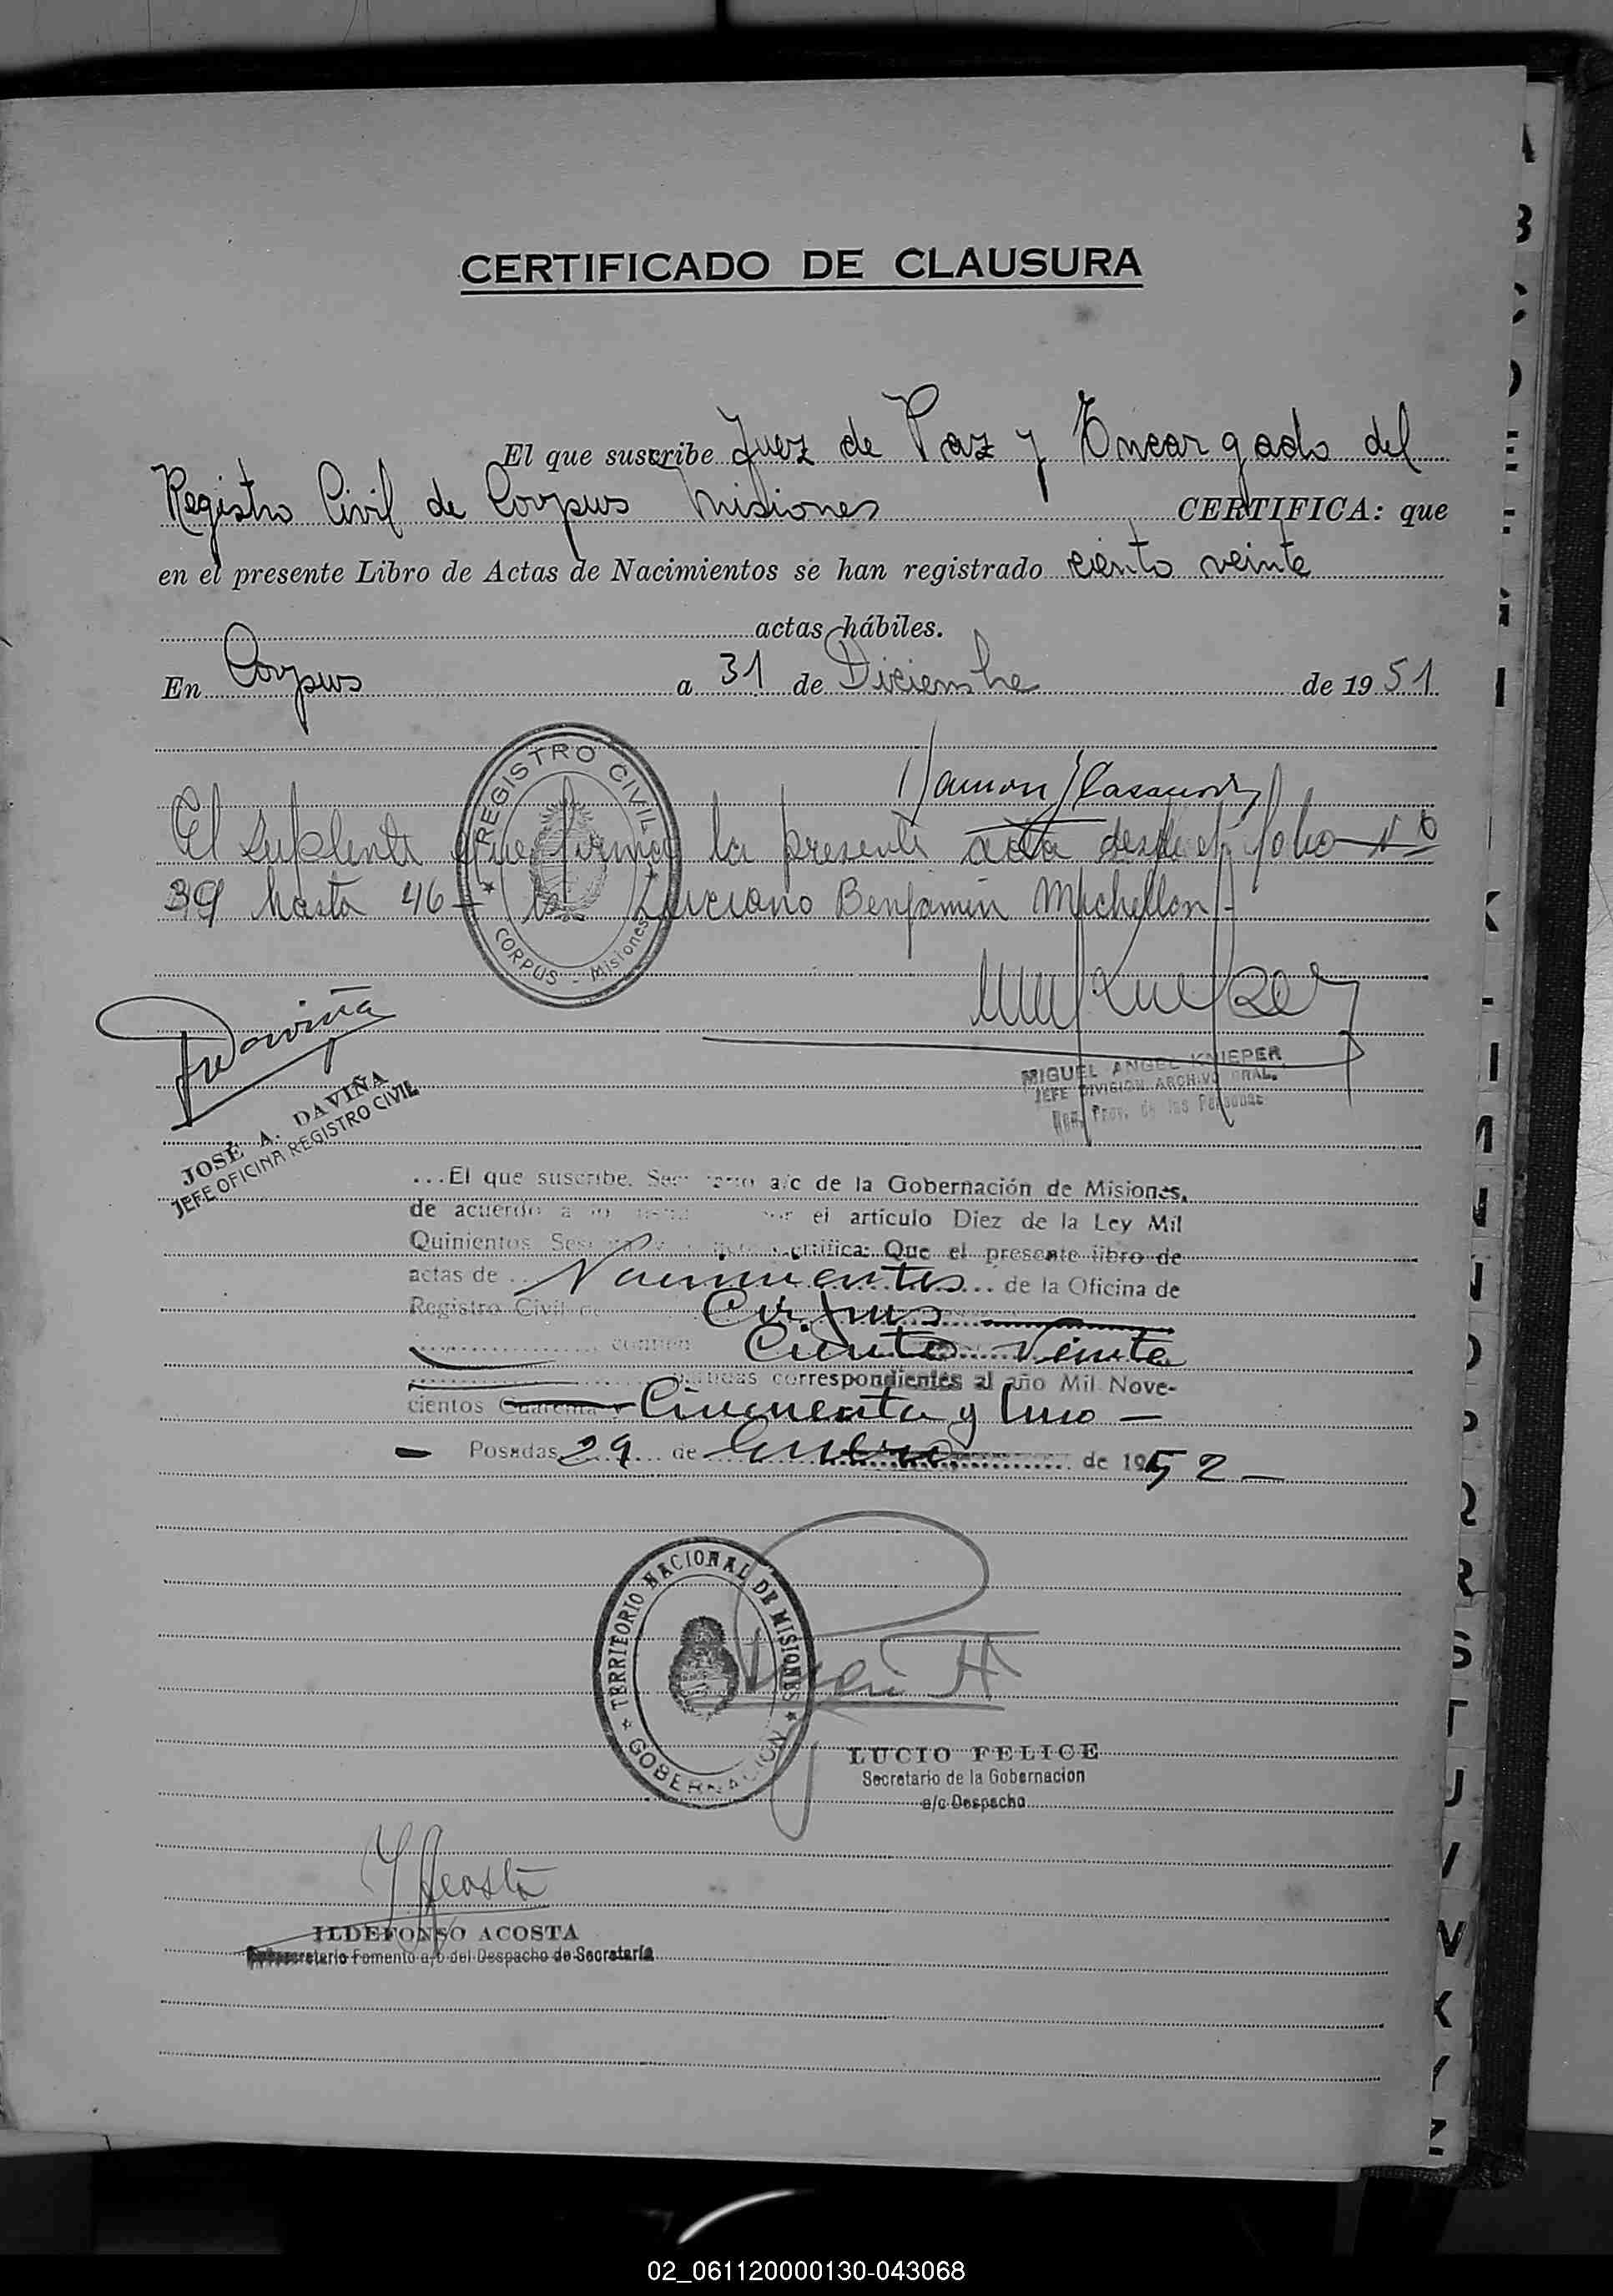 CERTIFICADO DE CLAUSURA
El que suscribe Juez de Paz y Encargado del
Registro Civil de Corpus Misiones CERTIFICA: que
en el presente Libro de Actas de Nacimientos se han registrado ciento veinte
actas hábiles.
En Corpus a 31 de Diciembre de 1951
REGISTRO CIVIL
CORPUS - Misiones
Ramon
El suplente que firma la presente acta desde el folio Nº
39 hasta 46 - es Luciano Benjamin Michellon
Daviña
JOSÉ A. DAVIÑA
JEFE OFICINA REGISTRO CIVIL
MIGUEL ANGEL KNIEPER
JEFE DIVISION ARCHIVO GRAL.
Reg. Prov. de las Personas
...El que suscribe, Secretario a/c de la Gobernación de Misiones,
de acuerdo a lo por el artículo Diez de la Ley Mil
Quinientos certifica: Que el presente libro de
actas de Nacimientos de la Oficina de
Registro Civil de Corpus
Ciento Veinte
correspondientes al año Mil Nove-
cientos Cuarenta y Cincuenta y Uno -
- Posadas 29 de Enero de 1952 -
TERRITORIO NACIONAL DE MISIONES
GOBERNACION
LUCIO FELICE
Secretario de la Gobernacion
a/c Despacho
Y Acosta
ILDEFONSO ACOSTA
Subsecretario Fomento a/c del Despacho de Secretaría
A
B
C
D
E
F
G
I
K
L
M
N
O
P
Q
R
S
T
U
V
W
X
Y
Z
02_061120000130-043068